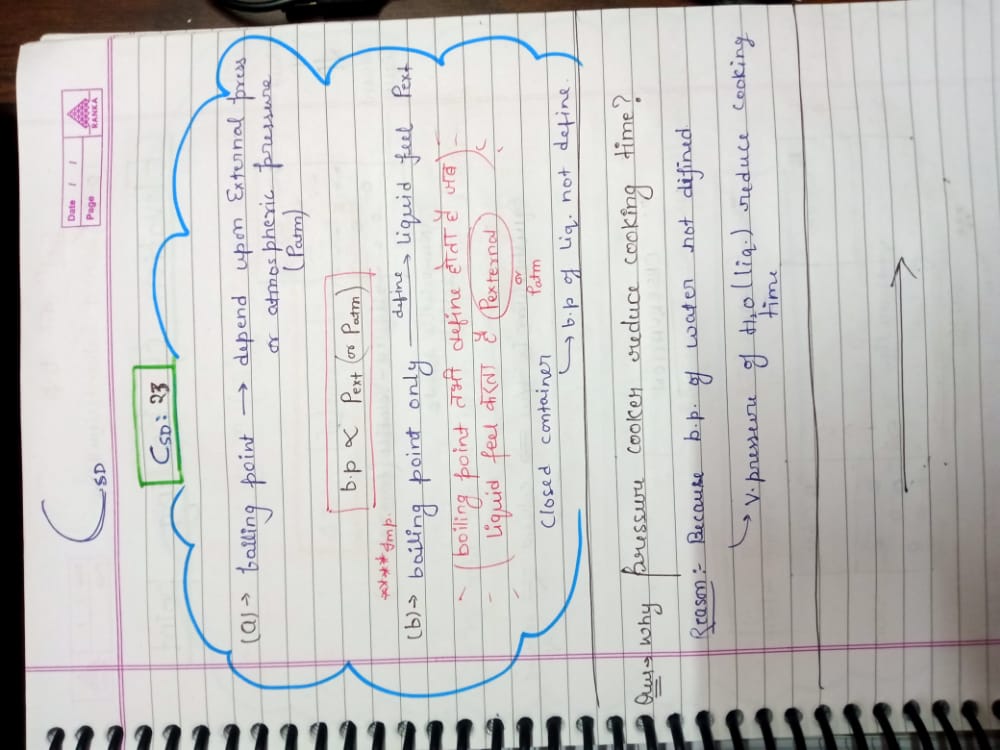 C SD
Date / /
Page
RANKA
CSD: 23
(a) → bailing point → depend upon External press
or atmospheric pressure
(Patm)
b.p ∝ Pext (or Patm)
**** Imp.
(b) → bailing point only define→ liquid feel Pext
(boiling point तभी define होता है जब
liquid feel करता है Pexternal)
or
Patm
Closed container
↳ b.p of liq. not define.
Ques → Why pressure cooker reduce cooking time?
Reason:- Because b.p. of water not defined
↳ V.pressure of H2O (liq.) reduce cooking
time